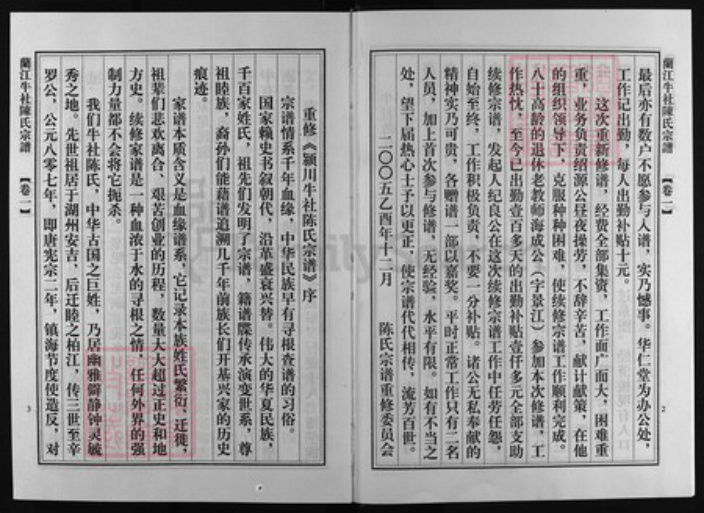 蘭江牛社陳氏宗譜
【卷一】
最后亦有数户不愿参与入谱，实乃憾事。华仁堂为办公处，
工作记出勤，每人出勤补贴十元。
这次重新修谱，经费全部集资，工作面广面大，困难重
重，业务负责绍源公昼夜操劳，不辞辛苦，献计献策，在他
的组织领导下，克服种种困难，使续修宗谱工作顺利完成。
八十高龄的退休老教师海成公（字景江）参加本次修谱，工
作热忱，至今已出勤壹百多天的出勤补贴壹仟多元全部支助
续修宗谱，发起人纪良公在这次续修宗谱工作中任劳任怨，
自始至终，工作积极负责，不要一分补贴。诸公无私奉献的
精神实乃可贵，各赠谱一部以嘉奖。平时正常工作只有二名
人员，加上首次参与修谱，无经验，水平有限。如有不当之
处，望下届热心士予以更正，使宗谱代代相传，流芳百世。
二〇〇五乙酉年十二月
陈氏宗谱重修委员会
2
重修《颍川牛社陈氏宗谱》序
宗谱情系千年血缘，中华民族早有寻根查谱的习俗。
国家赖史书叙朝代，沿革盛衰兴替。伟大的华夏民族，
千百家姓氏，祖先们发明了宗谱，籍谱牒传承演变世系，尊
祖睦族，裔孙们能藉谱追溯几千年前族长们开基兴家的历史
痕迹。
家谱本质含义是血缘谱系，它记录本族姓氏繁衍、迁徙，
祖辈们悲欢离合、艰苦创业的历程，数量大大超过正史和地
方史。续修家谱是一种血浓于水的寻根之情，任何外界的强
制力量都不会将它扼杀。
我们牛社陈氏，中华古国之巨姓，乃居幽雅僻静钟灵毓
秀之地。先世祖居于湖州安吉，后迁睦之柏江，传三世至辛
罗公，公元八零七年，即唐宪宗二年，镇海节度使造反，对
3
蘭江牛社陳氏宗譜
【卷一】